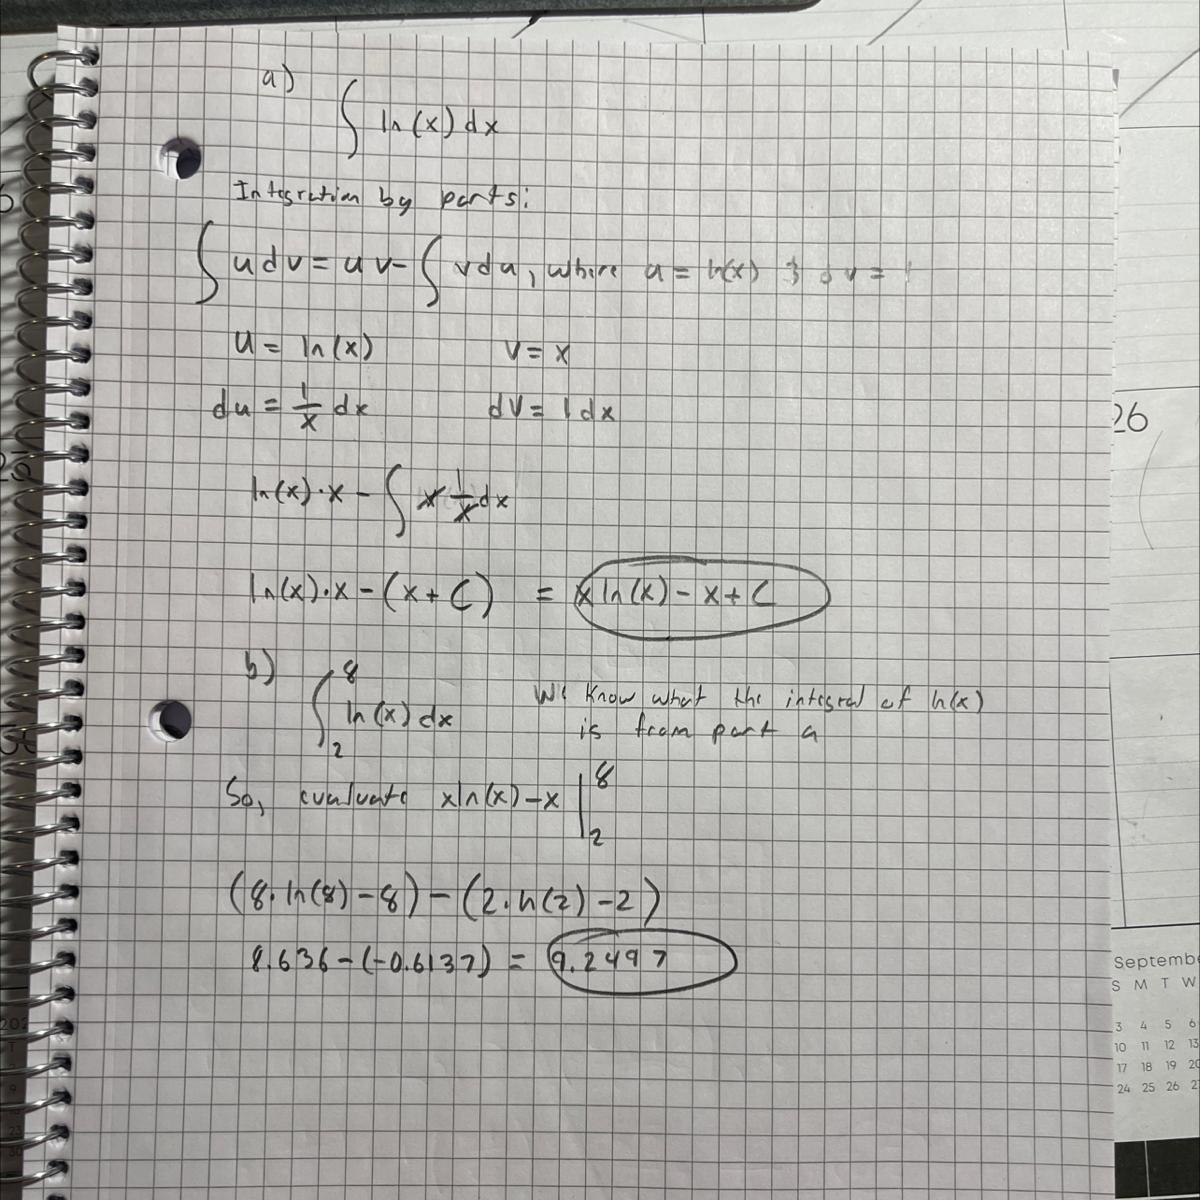 a)
∫ ln(x) dx
Integration by parts:
∫ u dv = uv - ∫ v du, where u = ln(x) & dv = 1
u = ln(x) v = x
du = 1/x dx dv = 1 dx
ln(x)·x - ∫ x 1/x dx
ln(x)·x - (x + C) = x ln(x) - x + C
b)
∫₂⁸ ln(x) dx We know what the integral of ln(x)
is from part a
So, evaluate xln(x) - x |₂⁸
(8·ln(8) - 8) - (2·ln(2) - 2)
8.636 - (-0.6137) = 9.2497
26
September
S M T W
3 4 5 6
10 11 12 13
17 18 19 20
24 25 26 2